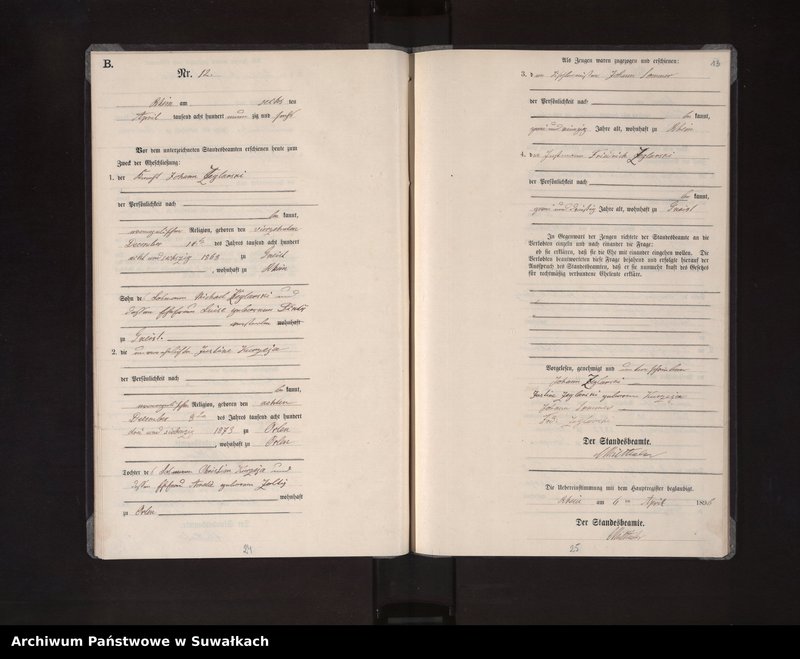 B.
Nr. 12.
Rhein am sechs ten
April tausend acht hundert neun zig und sechs
Vor dem unterzeichneten Standesbeamten erschienen heute zum
Zweck der Eheschließung:
1. der Knecht Johann
der Persönlichkeit nach
be kannt,
evangelischer Religion, geboren den vierzehnten
December 14te des Jahres tausend acht hundert
acht und sechszig 1868 zu Gneist
, wohnhaft zu Rhein
Sohn de Losmann Michael und
dessen Ehefrau Luise geborenen
wohnhaft
zu Gneist.
2. die unverehelichte Justine
der Persönlichkeit nach
be kannt,
evangelischer Religion, geboren den achten
December 8te des Jahres tausend acht hundert
drei und siebenzig 1873 zu Orlen
, wohnhaft zu Orlen
Tochter de Losmann Christian und
dessen Ehefrau Amalie geborenen
wohnhaft
zu Orlen
24
13
Als Zeugen waren zugezogen und erschienen:
3. der Johann Sommer
der Persönlichkeit nach
be kannt,
Jahre alt, wohnhaft zu Rhein
4. der Friedrich
der Persönlichkeit nach
be kannt,
zwei und dreißig Jahre alt, wohnhaft zu Gneist
In Gegenwart der Zeugen richtete der Standesbeamte an die
Verlobten einzeln und nach einander die Frage:
ob sie erklären, daß sie die Ehe mit einander eingehen wollen. Die
Verlobten beantworteten diese Frage bejahend und erfolgte hierauf der
Ausspruch des Standesbeamten, daß er sie nunmehr kraft des Gesetzes
für rechtmäßig verbundene Eheleute erkläre.
Vorgelesen, genehmigt und unterschrieben
Johann
Justine geborene
Johann Sommer
Der Standesbeamte.
Die Uebereinstimmung mit dem Hauptregister beglaubigt.
Rhein am 6 ten April 1896
Der Standesbeamte.
25
Archiwum Państwowe w Suwałkach